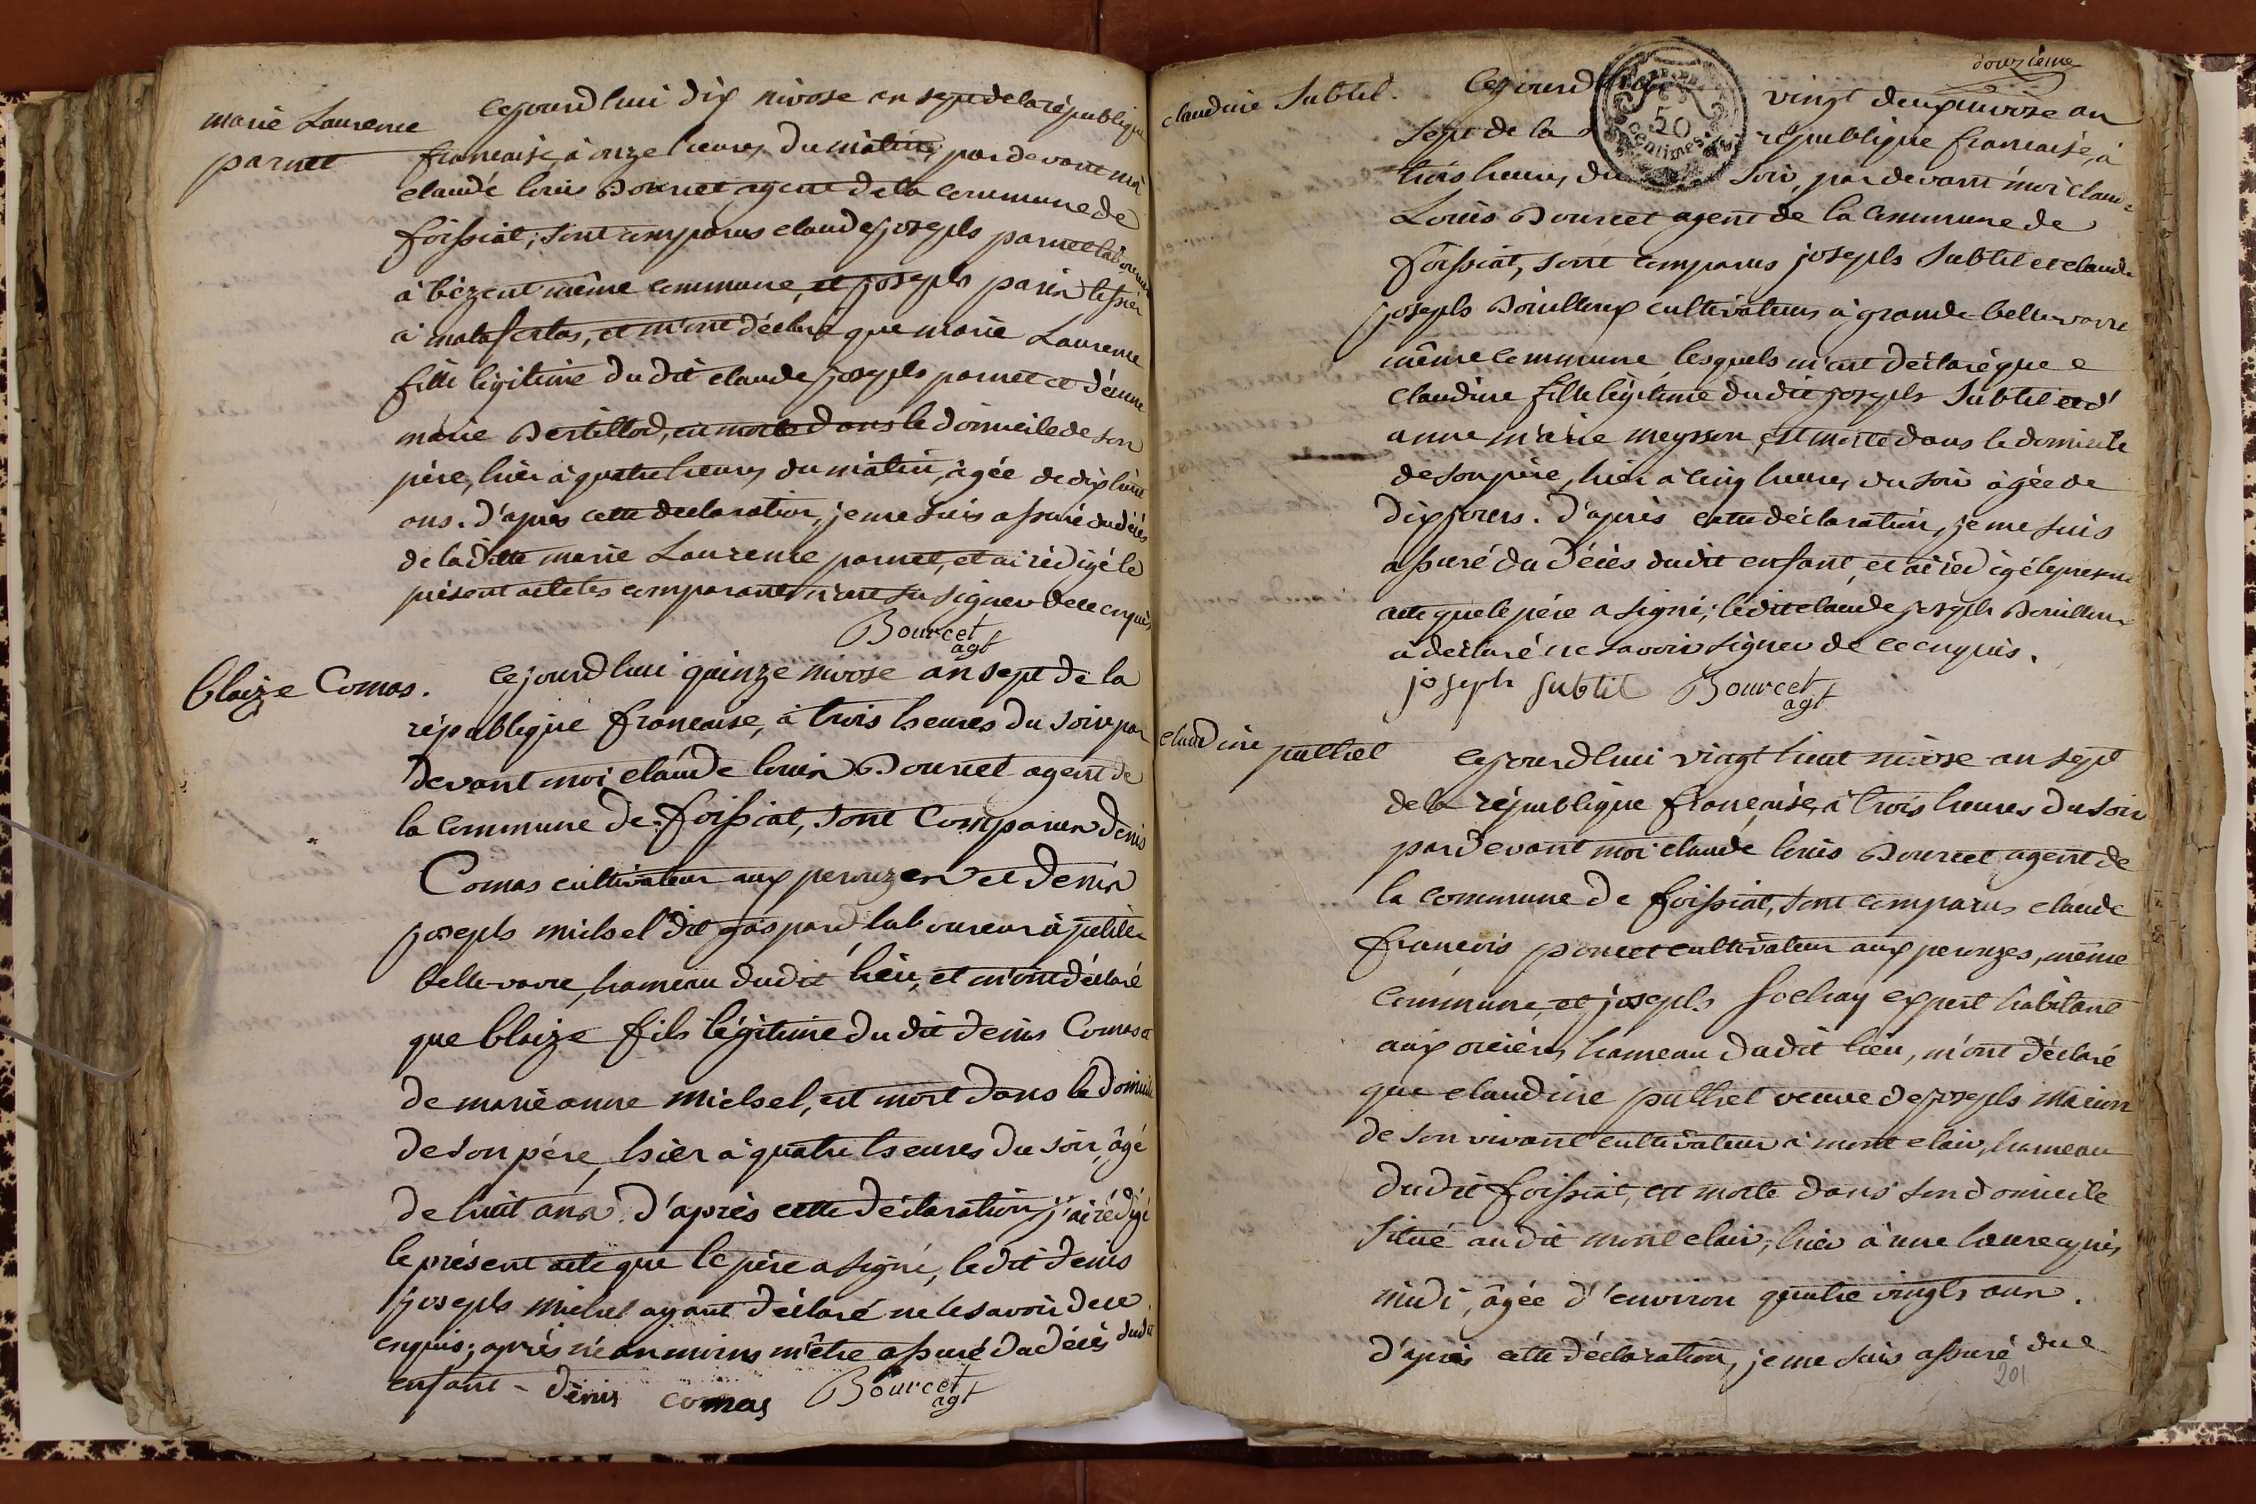 marie Laurence
parnet
cejourd'hui dix nivose an sept de la république
francaise, à onze heures du matin, par devant moi
claude louis Bourcet agent de la commune de
foissiat; sont comparus claude joseph parnet laboureur
à bézent même commune, et joseph parin tissier
à matafertas, et m'ont déclaré que marie Laurence
fille légitime du dit claude joseph parnet et d'anne
marie Bertillod, est morte dans le domicile de son
père, hier à quatre heures du matin, âgée de dix huit
ans. d'après cette declaration, je me suis assuré du décès
de la ditte marie Laurence parnet, et ai rédigé le
présent acte les comparants n'ont su signer de ce enquis
Bourcet
agt
blaize Comas.
cejourd'hui quinze nivose an sept de la
république francaise, à trois heures du soir par
devant moi claude louis Bourcet agent de
la commune de foissiat, sont comparus denis
Comas cultivateur aux perouzes et denis
joseph michel dit gaspard laboureur à petite
belle-vavre, hameau dudit lieu, et m'ont déclaré
que blaize fils légitime du dit denis Comas et
de marie anne michel, est mort dans le domicile
de son pére, hier à quatre heures du soir, âgé
de huit ans. d'après cette déclaration j'ai rédigé
le présent acte que le père a signé, le dit denis
joseph michel ayant déclaré ne le savoir de ce
enquis; après néanmoins m'être assuré du décès dudit
enfant - denis comas Bourcet
agt
douzième
50
centimes
claudine Subtil.
cejourd'hui vingt deux nivose an
sept de la république francaise, à
trois heures du soir, par devant moi claude
Louis Bourcet agent de la commune de
foissiat, sont comparus joseph Subtil et claude
joseph Bouilloux cultivateurs à grande belle-vavre
même commune lesquels m'ont déclaré que
claudine fille légitime du dit joseph Subtil et d'
anne marie meysson, est morte dans le domicile
de son père, hier à cinq heures du soir âgée de
dix jours. d'après cette déclaration, je me suis
assuré du décès dudit enfant, et ai rédigé le present
acte que le père a signé; le dit claude joseph Bouilloux
a déclaré ne savoir signer de ce enquis.
joseph subtil Bourcet
agt
claudine puthet
cejourd'hui vingt huit nivose an sept
de la république française, à trois heures du soir
par devant moi claude louis Bourcet agent de
la commune de foissiat, sont comparus claude
francois poncet cultivateur aux perouzes, même
commune, et joseph sochay expert habitant
aux oicières hameau dudit lieu, m'ont déclaré
que claudine puthet veuve de joseph marion
de son vivant cultivateur à mont clair, hameau
dudit foissiat, est morte dans son domicile
situé au dit mont clair, hier à une heure après
midi, âgée d'environ quatre vingts ans.
d'après cette déclaration, je me suis assuré du
201